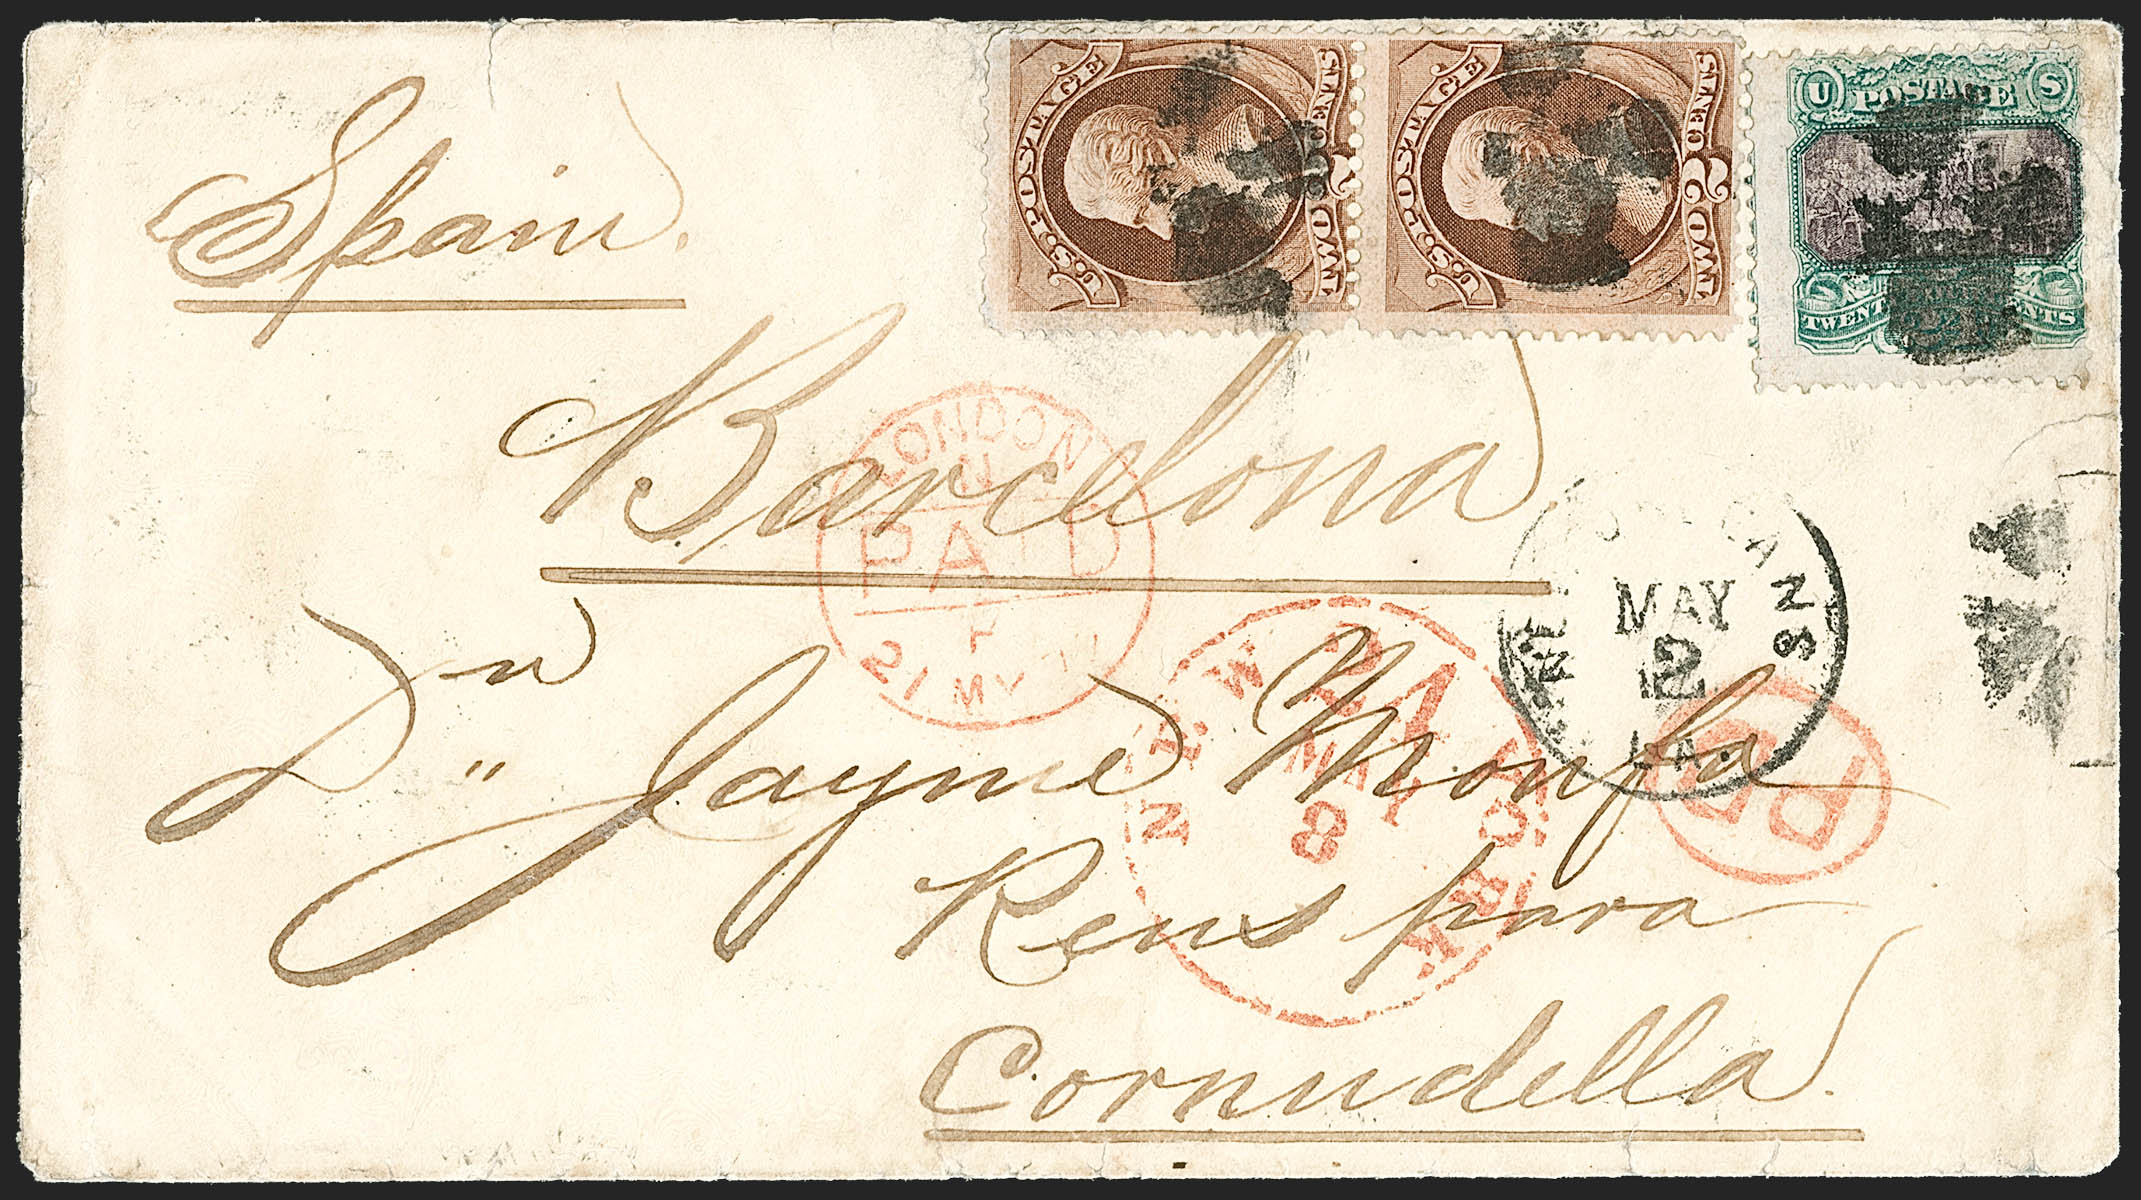 Spain.
U.S. POSTAGE
TWO CENTS
2
U.S. POSTAGE
TWO CENTS
2
U POSTAGE S
TWENTY CENTS
Barcelona
LONDON
N
PAID
21 MY 71
NEW ORLEANS
MAY
2
LA.
NEW YORK
MAY
8
PD
Dn Jayme Monfa
Reus para
Cornudella.